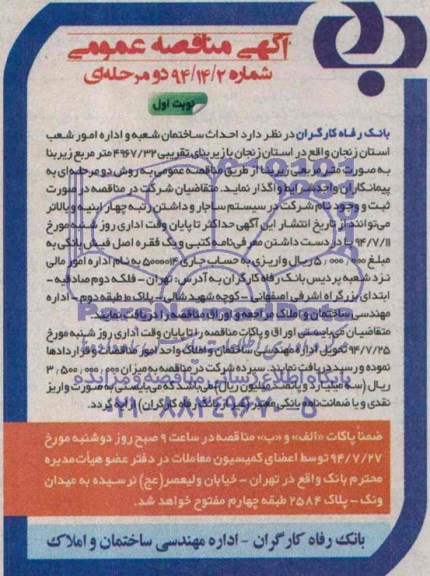 آگهی مناقصه عمومی
شماره ۹۴/۱۴/۲ دو مرحله‌ای
نوبت اول
بانک رفاه کارگران در نظر دارد احداث ساختمان شعبه و اداره امور شعب
استان زنجان واقع در استان زنجان با زیربنای تقریبی ۴۹۶۷/۳۲ متر مربع زیربنا
به صورت متر مربعی زیربنا از طریق مناقصه عمومی به روش دو مرحله‌ای به
پیمانکاران واجد شرایط واگذار نماید. متقاضیان شرکت در مناقصه در صورت
ثبت و وجود نام شرکت در سیستم ساجار و داشتن رتبه چهار ابنیه و بالاتر
می‌توانند از تاریخ انتشار این آگهی حداکثر تا پایان وقت اداری روز شنبه مورخ
۹۴/۷/۱۱ با در دست داشتن معرفی‌نامه کتبی و یک فقره اصل فیش بانکی به
مبلغ ۵۰۰,۰۰۰ ریال واریزی به حساب جاری ۵۰۰۰۰۱۴ به نام اداره امور مالی
نزد شعبه پردیس بانک رفاه کارگران به آدرس: تهران - فلکه دوم صادقیه -
ابتدای بزرگراه اشرفی اصفهانی - کوچه شهید شالی - پلاک ۱ طبقه دوم - اداره
مهندسی ساختمان و املاک مراجعه و اوراق مناقصه را دریافت نمایند.
متقاضیان می‌بایستی اوراق و پاکات مناقصه را تا پایان وقت اداری روز شنبه مورخ
۹۴/۷/۲۵ تحویل اداره مهندسی ساختمان و املاک واحد امور مناقصات و قراردادها
نموده و رسید دریافت نمایند. سپرده شرکت در مناقصه به میزان ۳,۵۰۰,۰۰۰,۰۰۰
ریال (سه میلیارد و پانصد میلیون ریال) می‌باشد که می‌بایستی به صورت واریز
نقدی و یا ضمانت‌نامه بانکی معتبر (غیر از بانک رفاه کارگران) ارائه گردد.
ضمناً پاکات «الف» و «ب» مناقصه در ساعت ۹ صبح روز دوشنبه مورخ
۹۴/۷/۲۷ توسط اعضای کمیسیون معاملات در دفتر عضو هیأت مدیره
محترم بانک واقع در تهران - خیابان ولیعصر(عج) نرسیده به میدان
ونک - پلاک ۲۵۸۴ طبقه چهارم مفتوح خواهد شد.
بانک رفاه کارگران - اداره مهندسی ساختمان و املاک